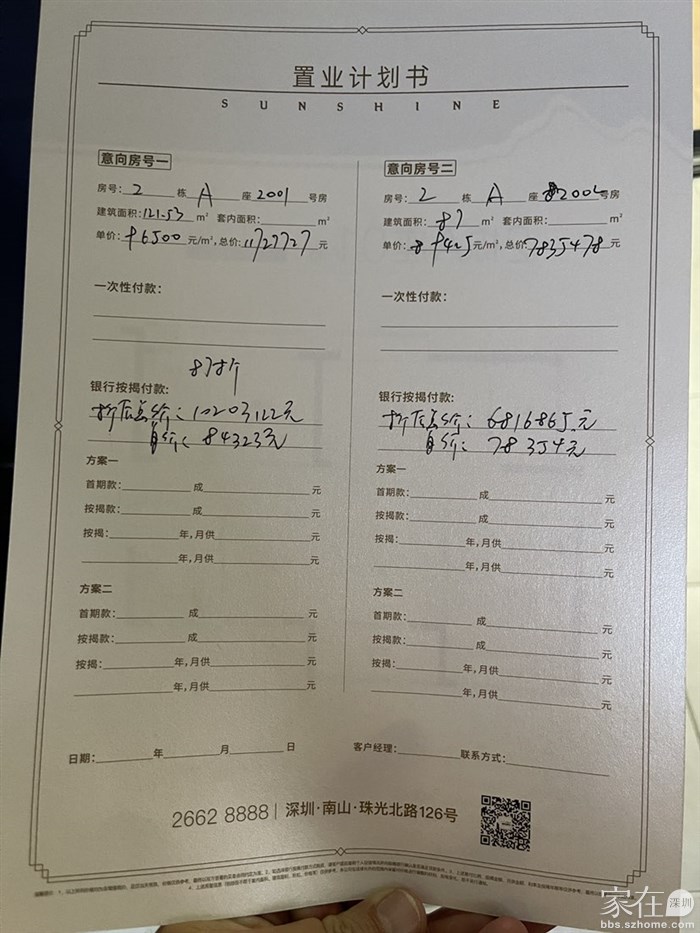 置业计划书
SUNSHINE
意向房号一
房号: 2 栋 A 座 2001 号房
建筑面积: 121.53 m² 套内面积: m²
单价: 96500 元/m², 总价: 11727727 元
一次性付款:
87折
银行按揭付款:
折后总价: 10203122元
单价: 84323元
方案一
首期款: 成 元
按揭款: 成 元
按揭: 年, 月供 元
年, 月供 元
方案二
首期款: 成 元
按揭款: 成 元
按揭: 年, 月供 元
年, 月供 元
意向房号二
房号: 2 栋 A 座 2002 号房
建筑面积: 87 m² 套内面积: m²
单价: 元/m², 总价: 7835478 元
一次性付款:
银行按揭付款:
折后总价: 6816865元
单价: 78354元
方案一
首期款: 成 元
按揭款: 成 元
按揭: 年, 月供 元
年, 月供 元
方案二
首期款: 成 元
按揭款: 成 元
按揭: 年, 月供 元
年, 月供 元
日期: 年 月 日 客户经理: 联系方式:
2662 8888 | 深圳·南山·珠光北路126号
家在深圳
bbs.szhome.com